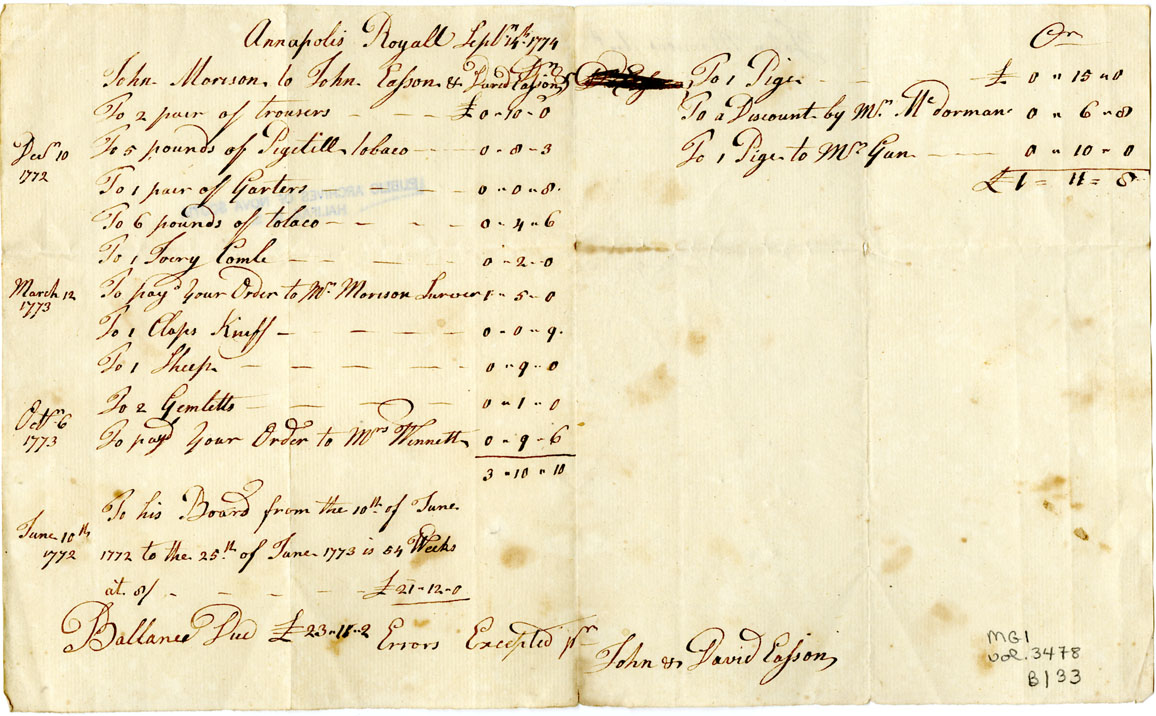 Annapolis Royall Septbr 14th 1774
John Morison to John Easson & David Easson Dr
To 2 pair of trousers £0-10-0
Decbr 10 1772
To 5 pounds of Pigetill tobaco 0-8-3
To 1 pair of Garters 0-0-8
To 6 pounds of tobaco 0-4-6
To 1 Ivery Comb 0-2-0
March 12 1773
To payd Your Order to Mr Morison Surver 1-5-0
To 1 Claps Kniff 0-0-9
To 1 Sheep 0-9-0
To 2 Gemletts 0-1-0
Octbr 6 1773
To payd Your Order to Mrs Winnett 0-9-6
3-10-10
June 10th 1772
To his Board from the 10th of June
1772 to the 25th of June 1773 is 54 Weeks
at 8/ £21-12-0
Ballance Due £23-11-2 Errors Excepted pr
John & David Easson
Cr
To 1 Pige £ 0 " 15 " 0
To a Discount by Mr McDorman 0 " 6 " 8
To 1 Pige to Mr Gun 0 " 10 " 0
£1 = 11 = 8
PUBLIC ARCHIVES OF NOVA SCOTIA
HALIFAX
MG1
vol. 3478
B133